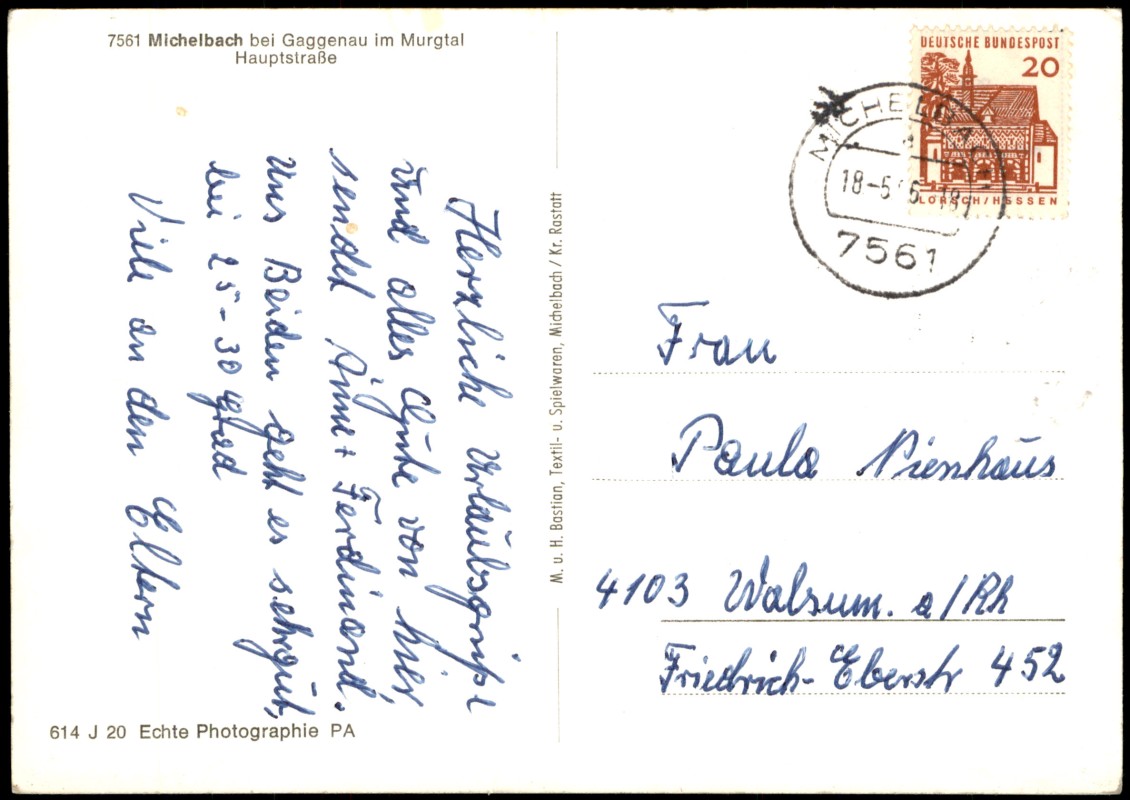 7561 Michelbach bei Gaggenau im Murgtal
Hauptstraße
Herzliche Urlaubsgrüße
und alles Gute von hier,
sendet Änne + Ferdinand.
Uns Beiden geht es sehr gut,
bei 25-30 grad
Viele an den Eltern
614 J 20 Echte Photographie PA
M. u. H. Bastian, Textil- u. Spielwaren, Michelbach / Kr. Rastatt
DEUTSCHE BUNDESPOST
20
LORSCH/HESSEN
MICHELBACH
18-5
7561
Frau
Paula Nienhaus
4103 Walsum. a/Rh
Friedrich-Eberstr 452